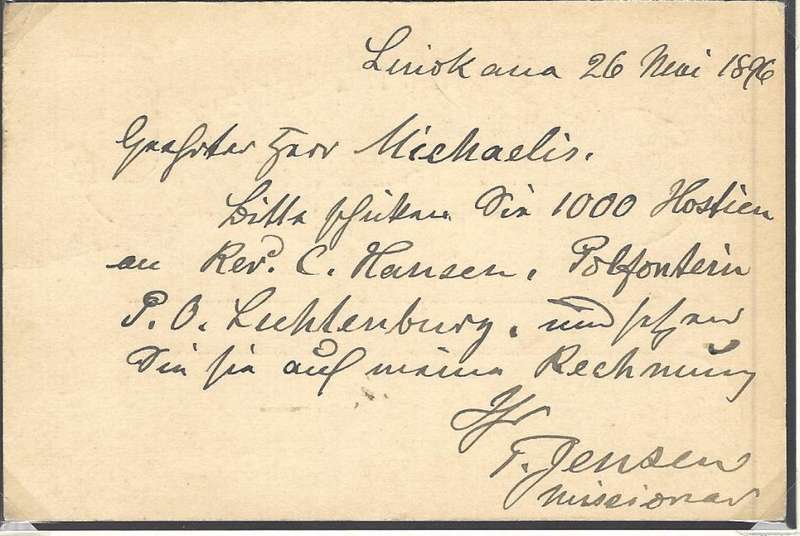 Linokana 26 Mai 1896
Geehrter Herr Michaelis.
Bitte schicken Sie 1000 Hostien
an Rev. C. Hansen, Polfontein
P. O. Lichtenburg, und setzen
Sie sie auf meine Rechnung
Ihr
T. Jensen
Missionar